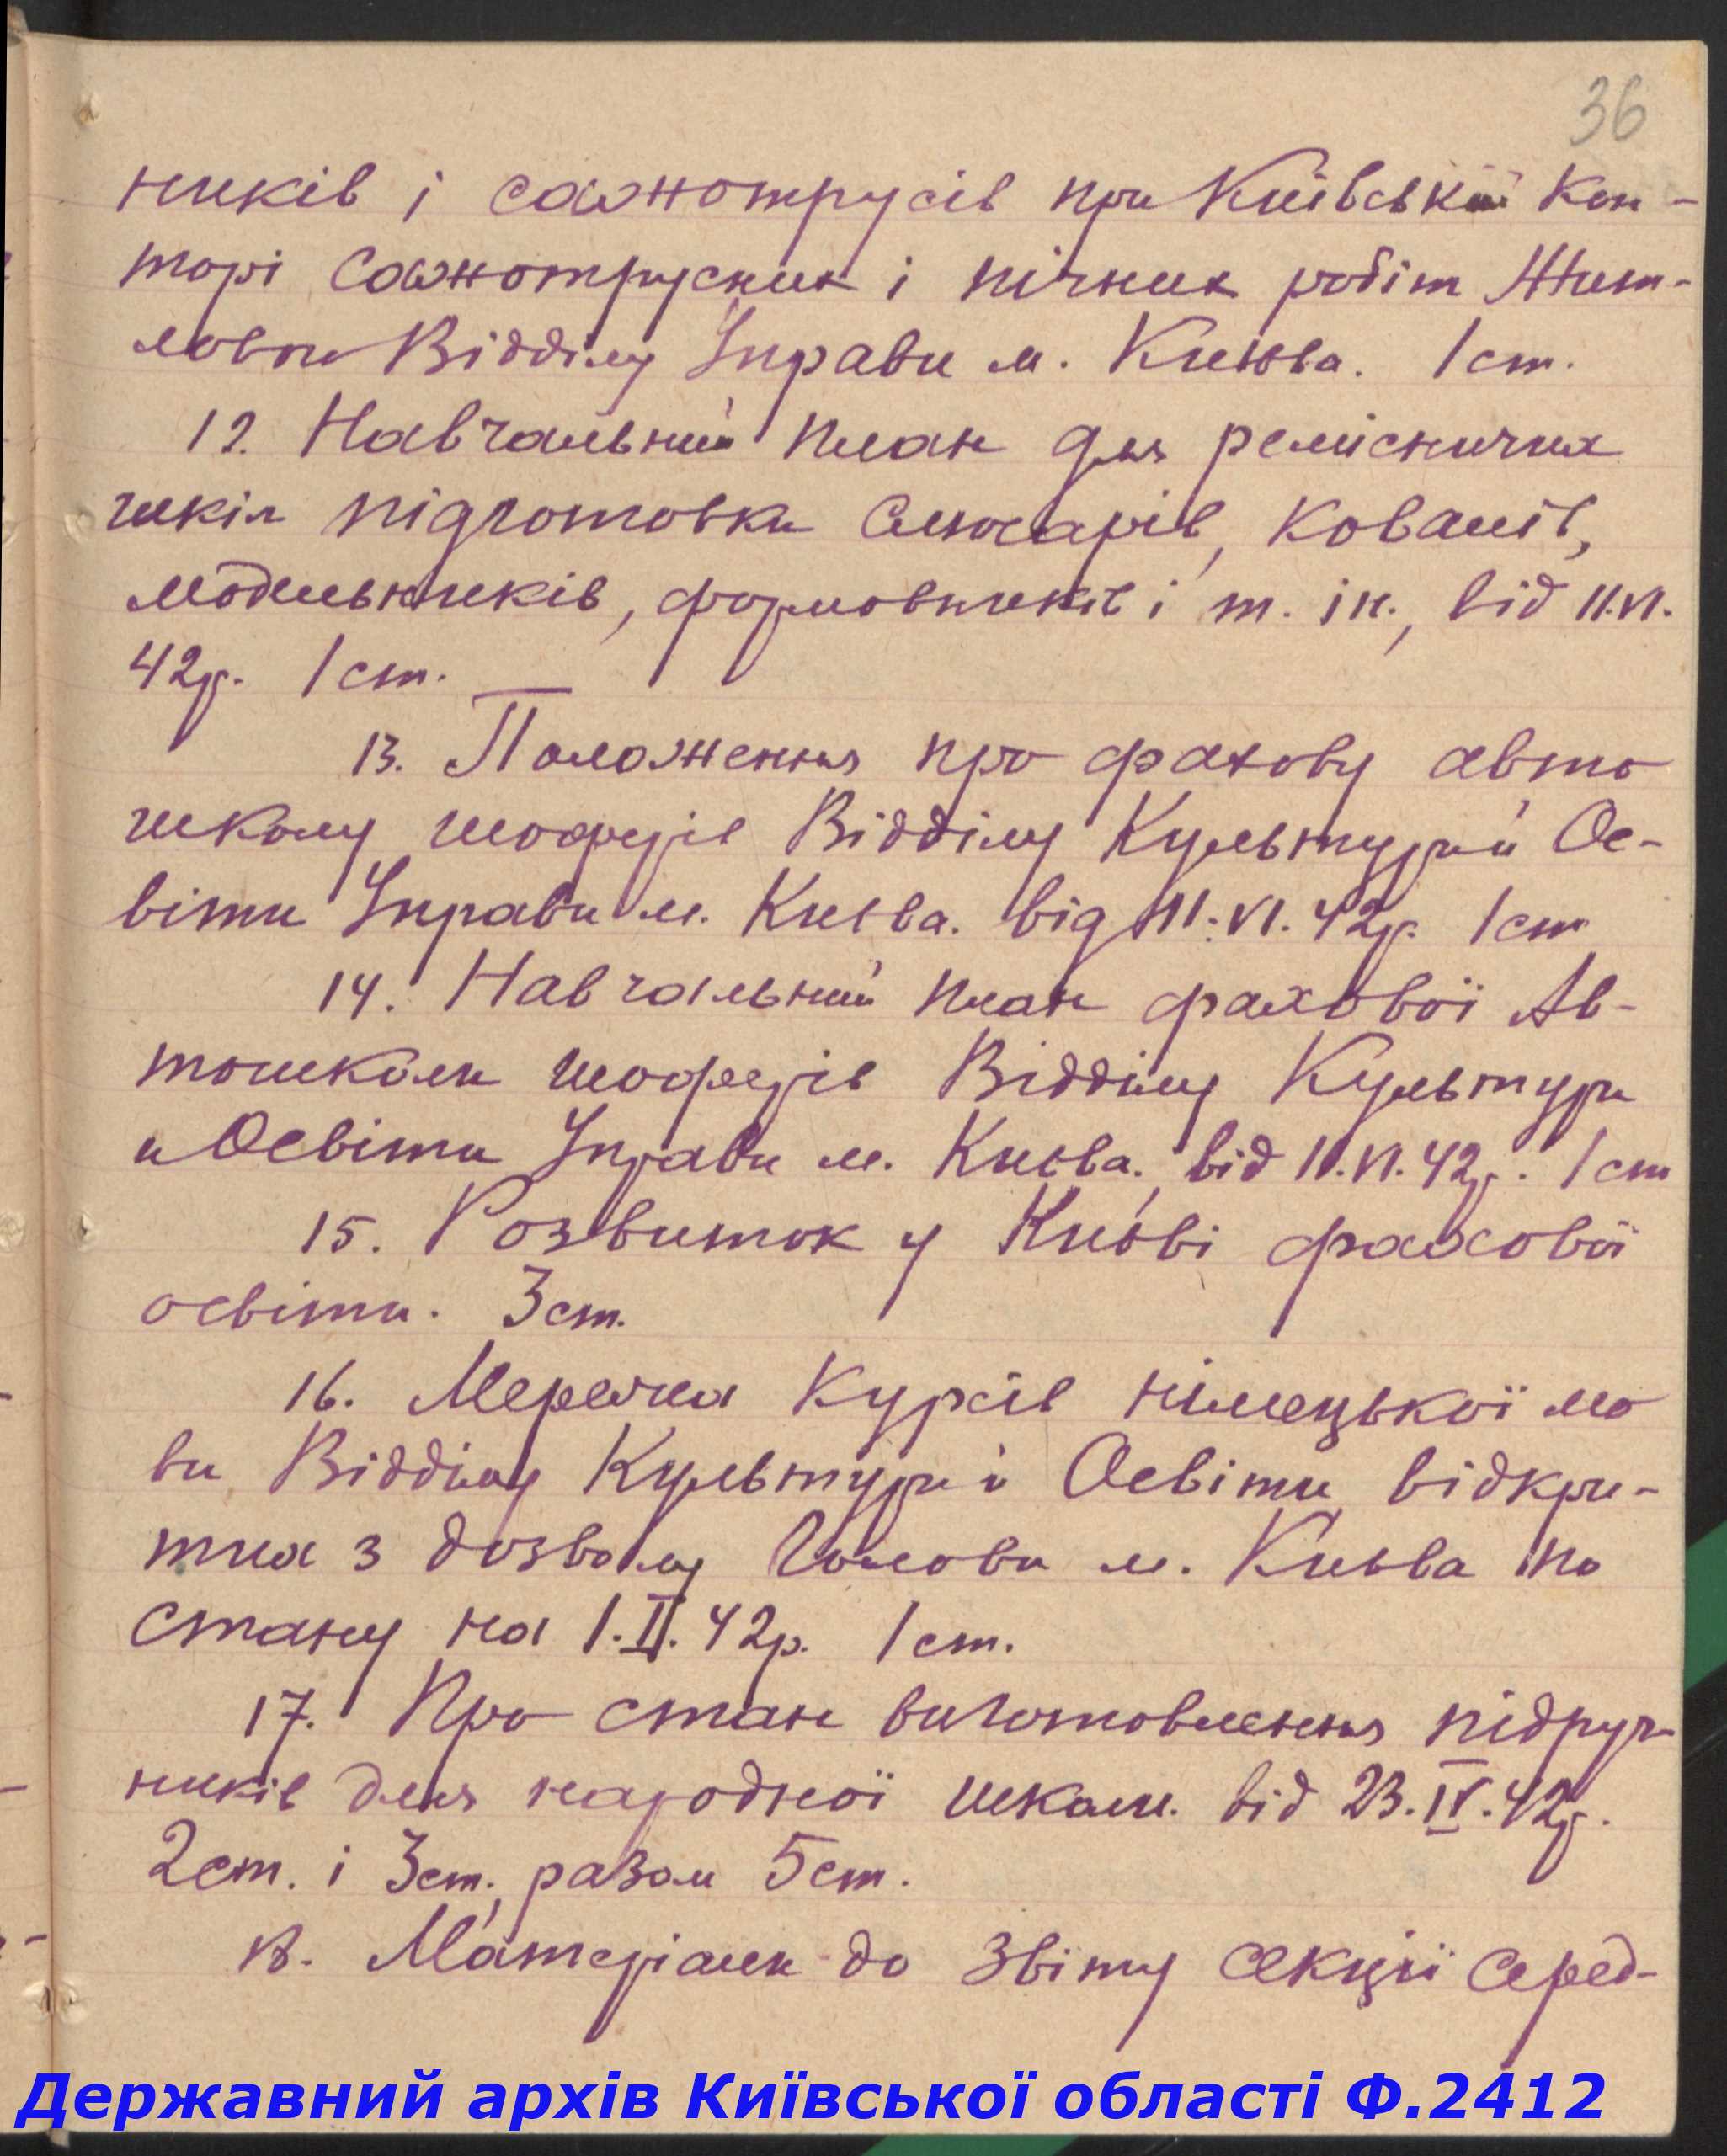 36
ників і сажнотрусів при Київській Кон-
торі Сажнотрусних і пічних робіт Жит-
лового Відділу Управи м. Києва. 1 ст.
12. Навчальний план для ремісничих
шкіл підготовки Слюсарів, Ковалів,
модельників, формовників і т. ін., від 11.VI.
42р. 1 ст.
13. Положення про фахову авто
школу шоферів Відділу Культури й Ос-
віти Управи м. Києва. від 11.VI.42р. 1 ст
14. Навчальний план фахової Ав-
тошколи шоферів Відділу Культури
и Освіти Управи м. Києва. від 11.VI.42р. 1 ст
15. Розвиток у Києві фахової
освіти. 3 ст.
16. Мережа Курсів німецької мо
ви Відділу Культури й Освіти, відкри-
тих з дозволу Голови м. Києва по
стану на 1.II.42р. 1 ст.
17. Про стан виготовлення підруч-
ників для народної школи. від 23.IV.42р.
2 ст. і 3 ст., разом 5 ст.
18. Матеріали до Звіту секції Серед-
Державний архів Київської області Ф.2412